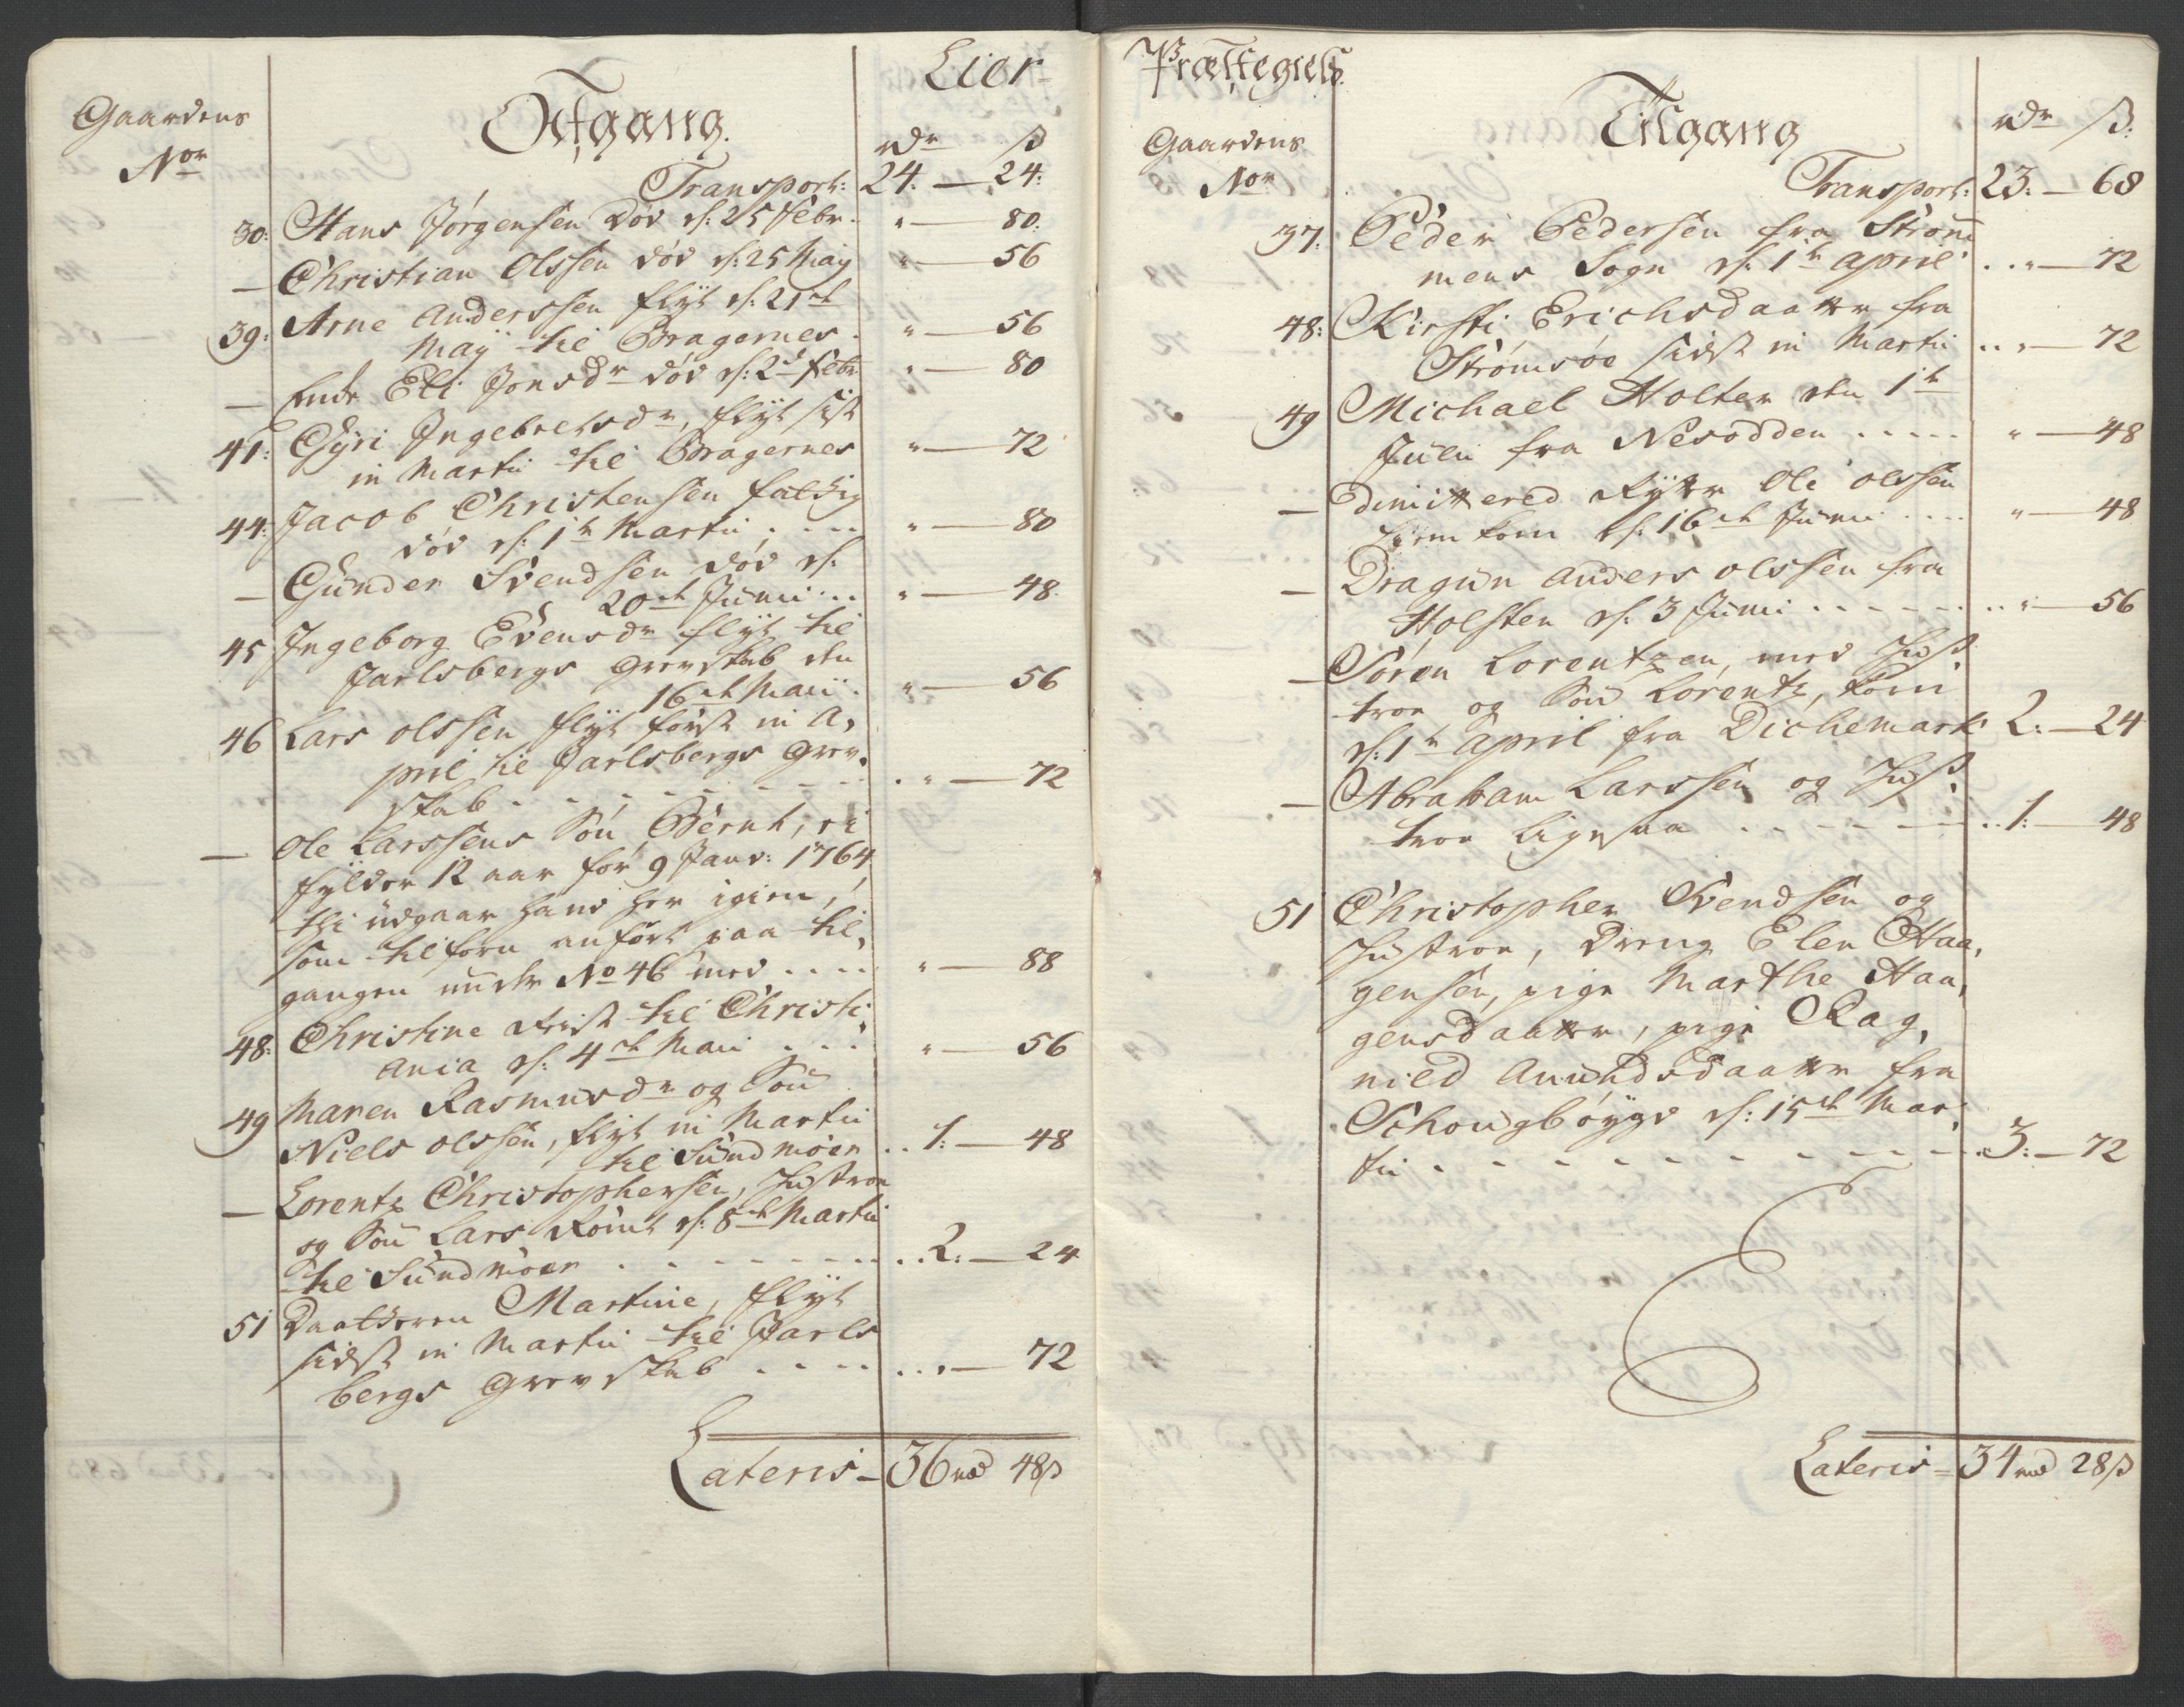 Lier-
Gaardens
Nor
Afgang.
rdr ß
Transport: 24. — 24:
30: Hans Jörgensen död d: 25 Febr. " — 80.
— Christian Olssen död d: 25 Maÿ " — 56
39: Arne Anderssen flÿt d: 21de
Maÿ til Bragernes. " — 56
— Enke Eli Jonsdr död d: 2d Febr " — 80
41: Gÿri Ingebretsdr, flÿt sist
in Martii til Bragernes " — 72
44: Jacob Christensen fattig
död d: 1te Martii, .... " — 80
— Gunder Svendsen död d.
20de Junii ... " — 48.
45 Ingeborg Evensdr flÿt til
Jarlsbergs Grevskab den
16de Maii. " — 56
46 Lars Olssen flÿt först in A,
pril til Jarlsbergs Grev,
skab . . . . . . . " — 72
— Ole Larssens Sön, Bernt, ei
fÿlder 12 aar för 9 Janv: 1764,
thi udgaar hand her igien,
som tilforn anfört paa til,
gangen under No 46 med .... " — 88
48: Christine Reist til Christi,
ania d: 4de Maii .... " — 56
49 Maren Rasmusdr og Sön
Niels Olssen, flÿt in Martii
til Sundmöer .. 1: — 48
— Lorentz Christophersen, Hustroe
og Sön Lars Römt d: 8de Martii
til Sundmöer . . . . . . 2: — 24
51 Daatteren Martine, flÿt
sidst in Martii til Jarls
bergs Grevskab . . . . . . " — 72
Lateris — 36 rd 48ß
Præstegield.
Gaardens
Nor
Tilgang
rdr ß.
Transport: 23. — 68
37. Peder Pedersen fra Ström
mens Sogn d. 1te April . . " — 72
48: Kirsti Erichsdaatter fra
Strömsöe sidst in Martii . . " — 72
49 Michael Holter den 1te
Julii fra Nesodden ..... " — 48
— Dimittered Rÿtter Ole Olssen
hiemkom d. 16de Junii .... " — 48
— Dragun Anders Olssen fra
Holsten d. 3 Junii . . . . . . " — 56
— Sören Lorentzen, med Hus,
troe og Sön Lorentz, kom
d: 1te April fra Dichemark 2: — 24
— Abraham Larssen og Hus,
troe Ligesaa . . . . . . 1: — 48
51 Christopher Svendsen og
Hustroe, Dreng Elen Haa,
gensen, pige Marthe Haa,
gensdaatter, pige Rag,
nild Amundsdaatter fra
Schougböÿgd d: 15de Mar,
tii . . . . . . . . . . 3: — 72
Lateris = 34 rd 28ß